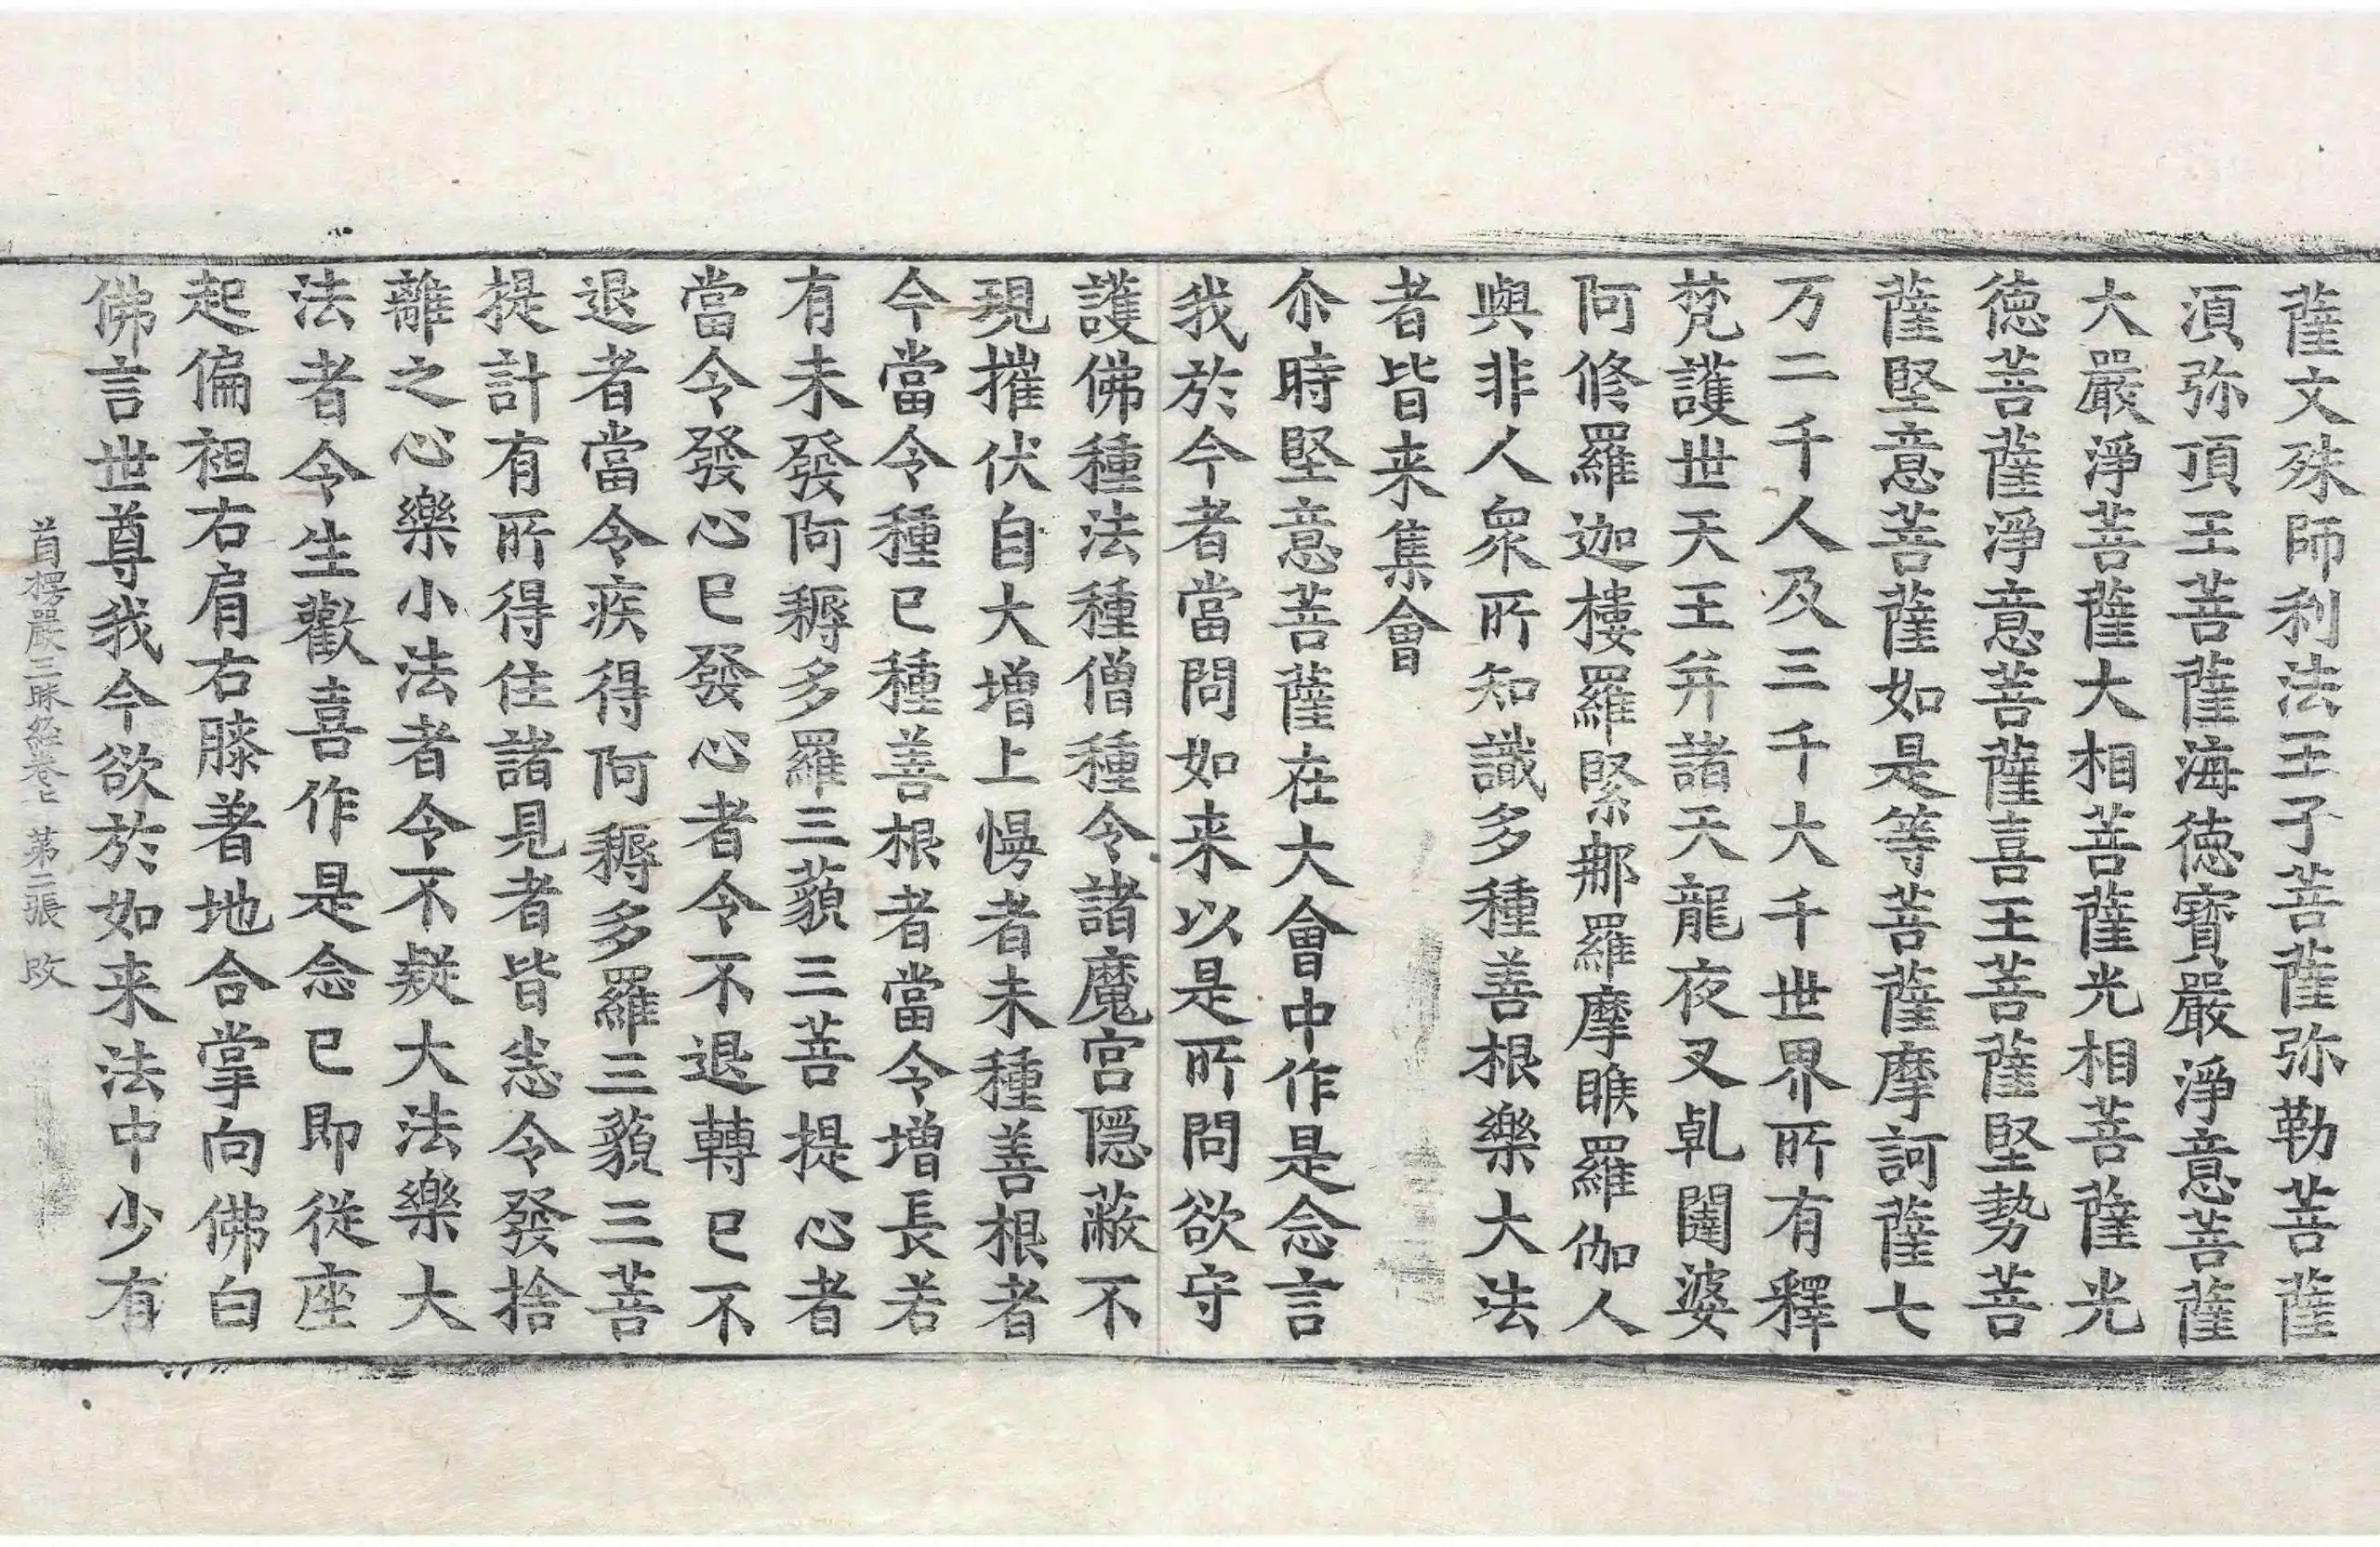 薩文殊師利法王子菩薩弥勒菩薩
湏弥頂王菩薩海德寶嚴淨意菩薩
大嚴淨菩薩大相菩薩光相菩薩光
德菩薩淨意菩薩喜王菩薩堅勢菩
薩堅意菩薩如是等菩薩摩訶薩七
万二千人及三千大千世界所有釋
梵護世天王并諸天龍夜叉乹闥婆
阿修羅迦樓羅緊那羅摩睺羅伽人
與非人衆所知識多種善根樂大法
者皆来集會
尒時堅意菩薩在大會中作是念言
我於今者當問如来以是所問欲守
護佛種法種僧種令諸魔宮隱蔽不
現摧伏自大增上慢者未種善根者
今當令種已種善根者當令增長若
有未發阿耨多羅三藐三菩提心者
當令發心已發心者令不退轉已不
退者當令疾得阿耨多羅三藐三菩
提計有所得住諸見者皆悉令發捨
離之心樂小法者令不疑大法樂大
法者令生歡喜作是念已即從座
起偏袒右肩右膝著地合掌向佛白
佛言世尊我今欲於如来法中少有
首楞嚴三昧經卷上 第二張 改